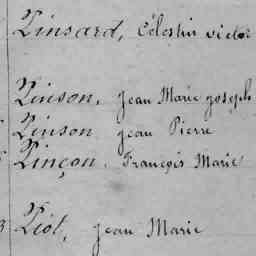 Pinsard, Célestin victor
Pinson, Jean Marie joseph
Pinson Jean Pierre
Pinçon, François Marie
Piot, Jean Marie